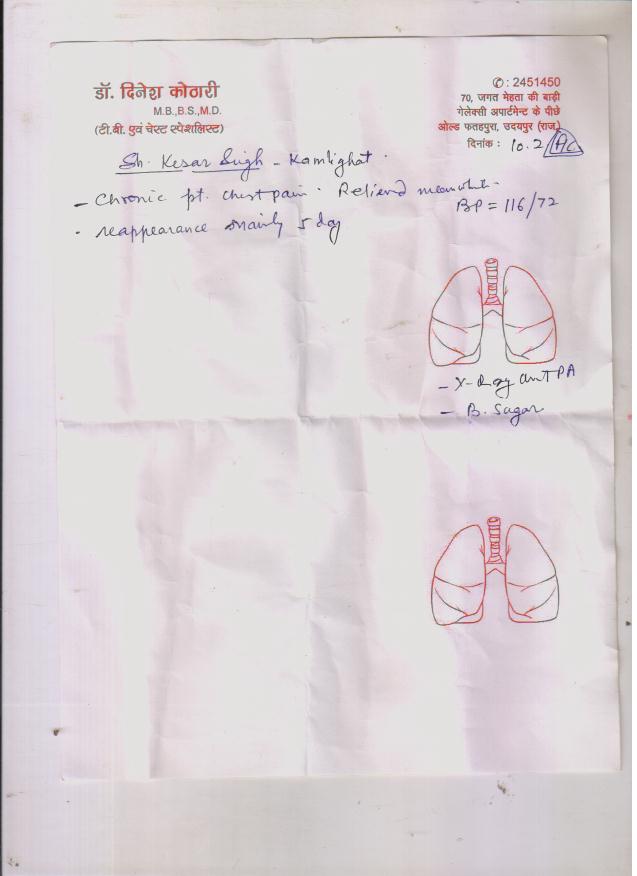 डॉ. दिनेश कोठारी
M.B.,B.S.,M.D.
(टी.बी. एवं चेस्ट स्पेशलिस्ट)
✆ : 2451450
70, जगत मेहता की बाड़ी
गेलेक्सी अपार्टमेन्ट के पीछे
ओल्ड फतहपुरा, उदयपुर (राज.)
दिनांक : 10.2
Sh. Kesar Singh - Kamlighat.
- Chronic pt. chest pain. Relieved
BP = 116/72
- reappearance mainly 5 day
- X-Ray chest PA
- B. Sugar